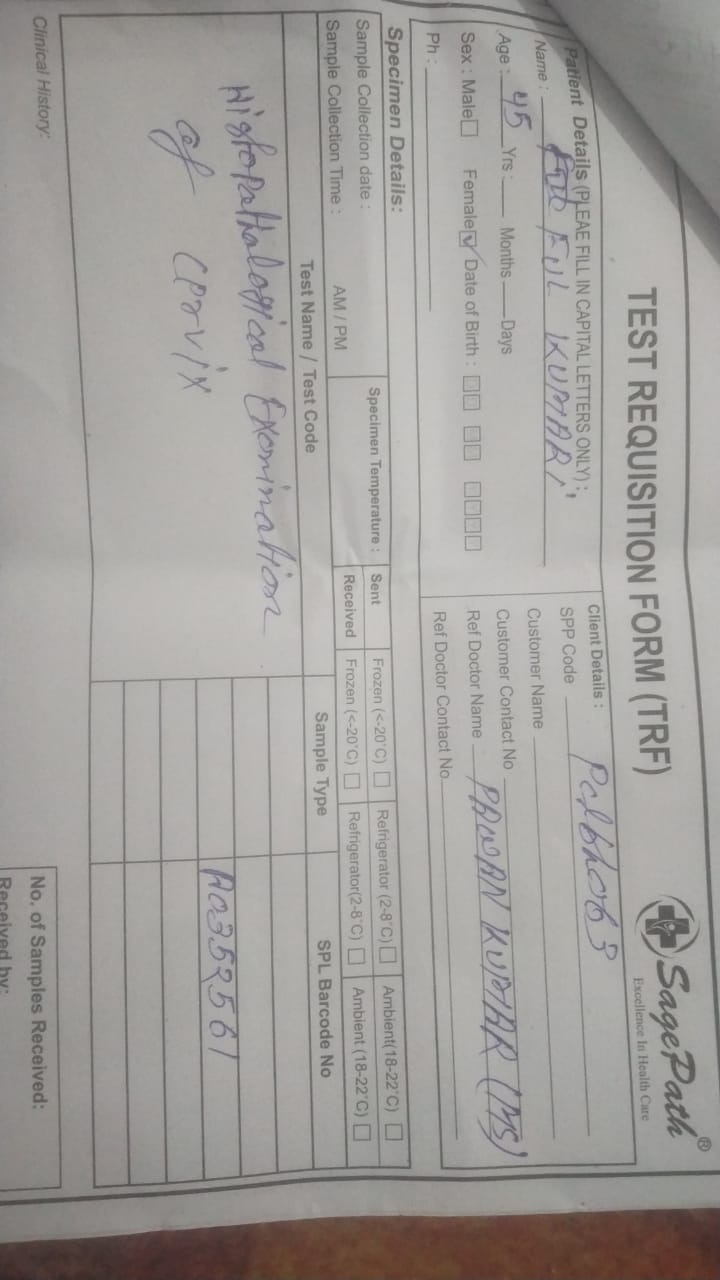 TEST REQUISITION FORM (TRF)
SagePath®
Excellence In Health Care
Patient Details (PLEAE FILL IN CAPITAL LETTERS ONLY) :
Name : FUL KUMARI
Age : 45 Yrs : Months Days
Sex : Male Female Date of Birth :
Ph :
Client Details :
SPP Code
Customer Name
Customer Contact No
Ref Doctor Name PAWAN KUMAR (MS)
Ref Doctor Contact No
Specimen Details:
Sample Collection date :
Sample Collection Time : AM / PM
Specimen Temperature : Sent Frozen (<-20°C) Refrigerator (2-8°C) Ambient(18-22°C)
Received Frozen (<-20°C) Refrigerator(2-8°C) Ambient (18-22°C)
Test Name / Test Code Sample Type SPL Barcode No
Histopathological Examination
of Cervix
A0352561
Clinical History:
No. of Samples Received:
Received by: